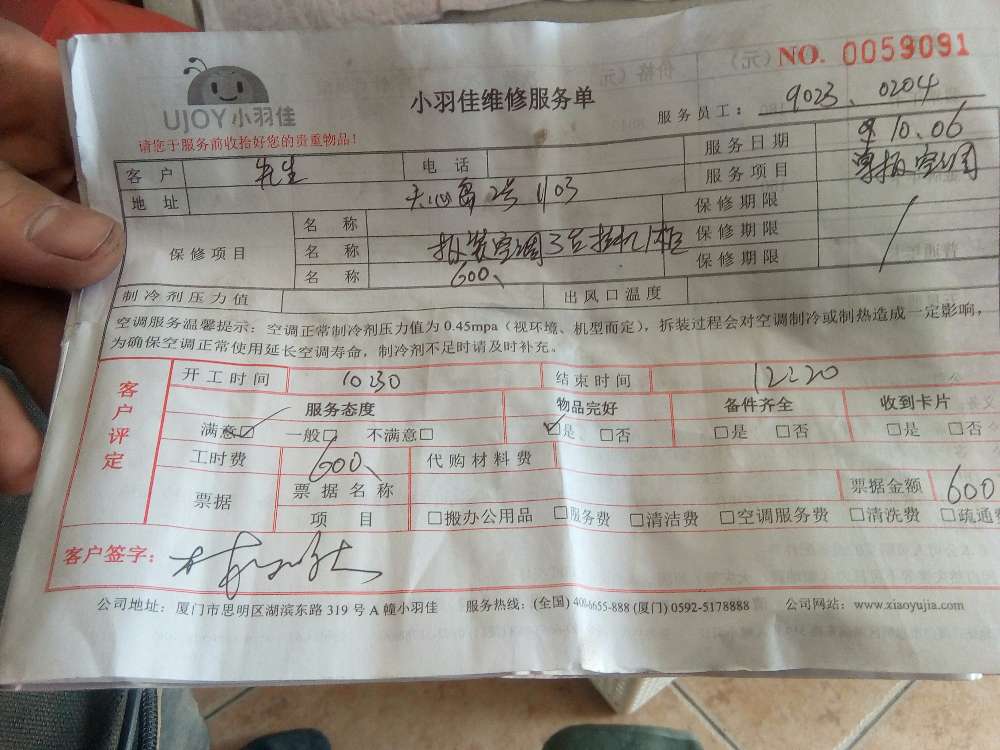 NO. 0059091
UJOY小羽佳
小羽佳维修服务单
服务员工：9023、0204
请您于服务前收拾好您的贵重物品!
客户 先生 电话 服务日期 10.06
地址 天心岛2号1103 服务项目 空调
保修项目 名称 保修期限
名称 拆装空调3台挂机1柜 保修期限
名称 600、 保修期限
制冷剂压力值 出风口温度
空调服务温馨提示：空调正常制冷剂压力值为0.45mpa（视环境、机型而定），拆装过程会对空调制冷或制热造成一定影响，
为确保空调正常使用延长空调寿命，制冷剂不足时请及时补充。
客户评定
开工时间 10:30 结束时间 12:20
服务态度 物品完好 备件齐全 收到卡片
满意☑ 一般□ 不满意□ ☑是 □否 □是 □否 □是 □否
工时费 600、 代购材料费
票据 票据名称 票据金额 600
项目 □搬办公用品 □服务费 □清洁费 □空调服务费 □清洗费 □疏通费
客户签字：
公司地址：厦门市思明区湖滨东路319号A幢小羽佳 服务热线：(全国) 408-6655-888 (厦门) 0592-5178888 公司网站：www.xiaoyujia.com